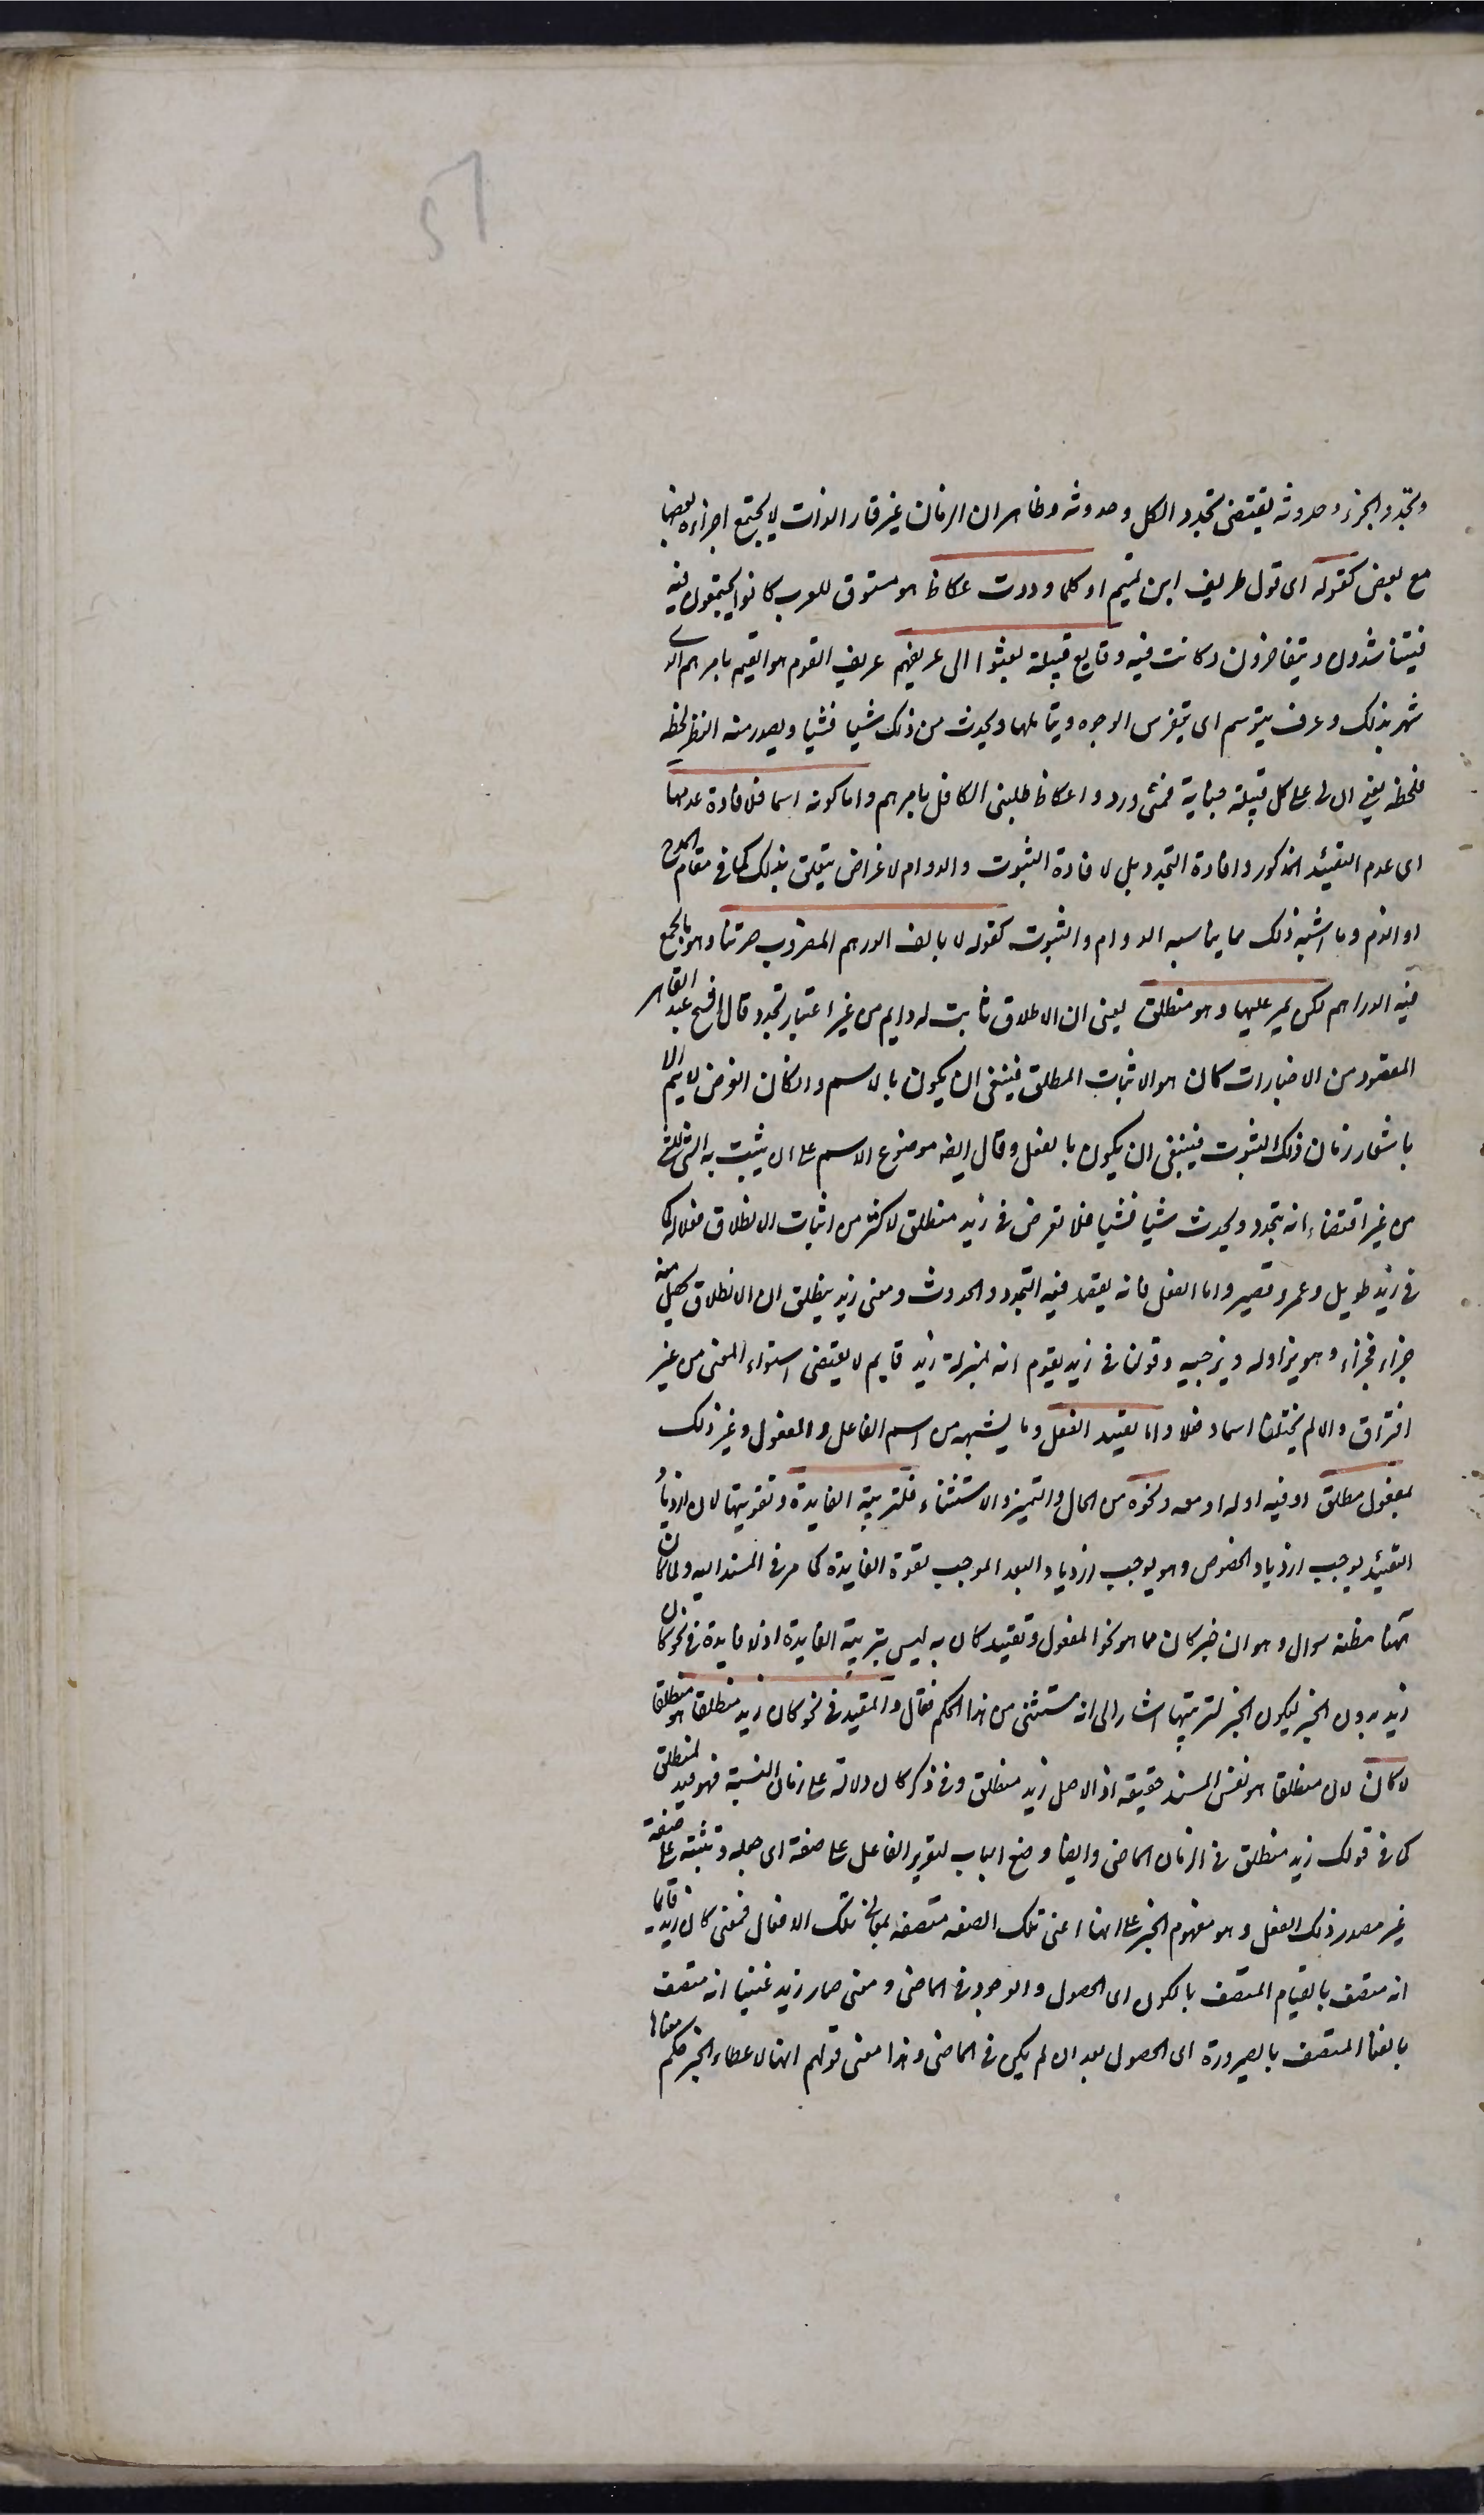 وتجدد الجزء وحدوثه يقتضى تجدد الكل وحدوثه وظاهر ان الزمان غير قار الذات لا يجتمع اجزاءه بعضها
مع بعض كقوله اى قول طريف ابن تميم او كلما وردت عكاظ هو متسوق للعرب كانوا يجتمعون فيه
فيتناشدون ويتفاخرون وكانت فيه وقايع قبيلة بعثوا الى عريفهم عريف القوم هو القيم بامرهم الذى
شهر بذلك وعرف يتوسم اى يتفرس الوجوه ويتاملها ويحدث من ذلك شيا فشيا ويصدر منه النظر لحظه
فلحظه يعنى ان لى على كل قبيلة جناية فمتى وردوا عكاظ طلبنى الكافل بامرهم واما كونه اسما فلافادة عدمهما
اى عدم التقييد المذكور وافادة التجدد بل لافادة الثبوت والدوام لاغراض يتعلق بذلك كما فى مقام المدح
او الذم وما اشبه ذلك مما يناسبه الدوام والثبوت كقوله لا يالف الدرهم المضروب صرتنا وهو ما يجمع
فيه الدراهم لكن يمر عليها وهو منطلق يعنى ان الاطلاق ثابت له دايم من غير اعتبار تجدد قال الشيخ عبد القاهر
المقصود من الاخبارات كان هو الاثبات المطلق فينبغى ان يكون بالاسم وان كان الغرض لا يتم الا
باشعار زمان ذلك الثبوت فينبغى ان يكون بالفعل وقال ايضا موضوع الاسم على ان يثبت به الشئ للشئ
من غير اقتضاء انه يتجدد ويحدث شيا فشيا فلا تعرض فى زيد منطلق لاكثر من اثبات الانطلاق فعلا له كما
فى زيد طويل وعمرو قصير واما الفعل فانه يقصد فيه التجدد والحدوث ومعنى زيد ينطلق ان الانطلاق يحصل منه
جزاء فجزاء وهو يزاوله ويزجيه وقولنا فى زيد يقوم انه بمنزلة زيد قايم لا يقتضى استواء المعنى من غير
افتراق والا لم يختلفا اسما وفعلا واما تقييد الفعل وما يشبهه من اسم الفاعل والمفعول وغير ذلك
بمفعول مطلق او فيه او له او معه ونحوه من الحال والتميز والاستثناء فلتربية الفايدة وتقويتها لان ازدياد
التقييد يوجب ازدياد الخصوص وهو يوجب ازدياد البعد الموجب لقوة الفايدة كما مر فى المسند اليه ولما كان
ههنا مظنه سوال وهو ان خبر كان مما هو نحو المفعول وتقييد كان به ليس بتربية الفايدة اذ لا فايدة فى نحو كان
زيد بدون الخبر ليكون الخبر لتربيتها اشار الى انه مستثنى من هذا الحكم فقال والمقيد فى نحو كان زيد منطلقا هو منطلقا
لا كان لان منطلقا هو نفس المسند حقيقه اذ الاصل زيد منطلق وفى ذكر كان دلالة على زمان النسبة فهو قيد لمنطلق
كما فى قولك زيد منطلق فى الزمان الماضى وايضا وضع الباب لتقرير الفاعل على صفة اى جعله وتثبته على صفة
غير مصدر ذلك الفعل وهو مفهوم الخبر على انها اعنى تلك الصفه متصفه بمعانى تلك الافعال فمعنى كان زيد قائما
انه متصف بالقيام المتصف بالكون اى الحصول والوجود فى الماضى ومعنى صار زيد غنيا انه متصف
بالغنا المتصف بالصيرورة اى الحصول بعد ان لم يكن فى الماضى وهذا معنى قولهم انها لاعطاء الخبر حكم معناها